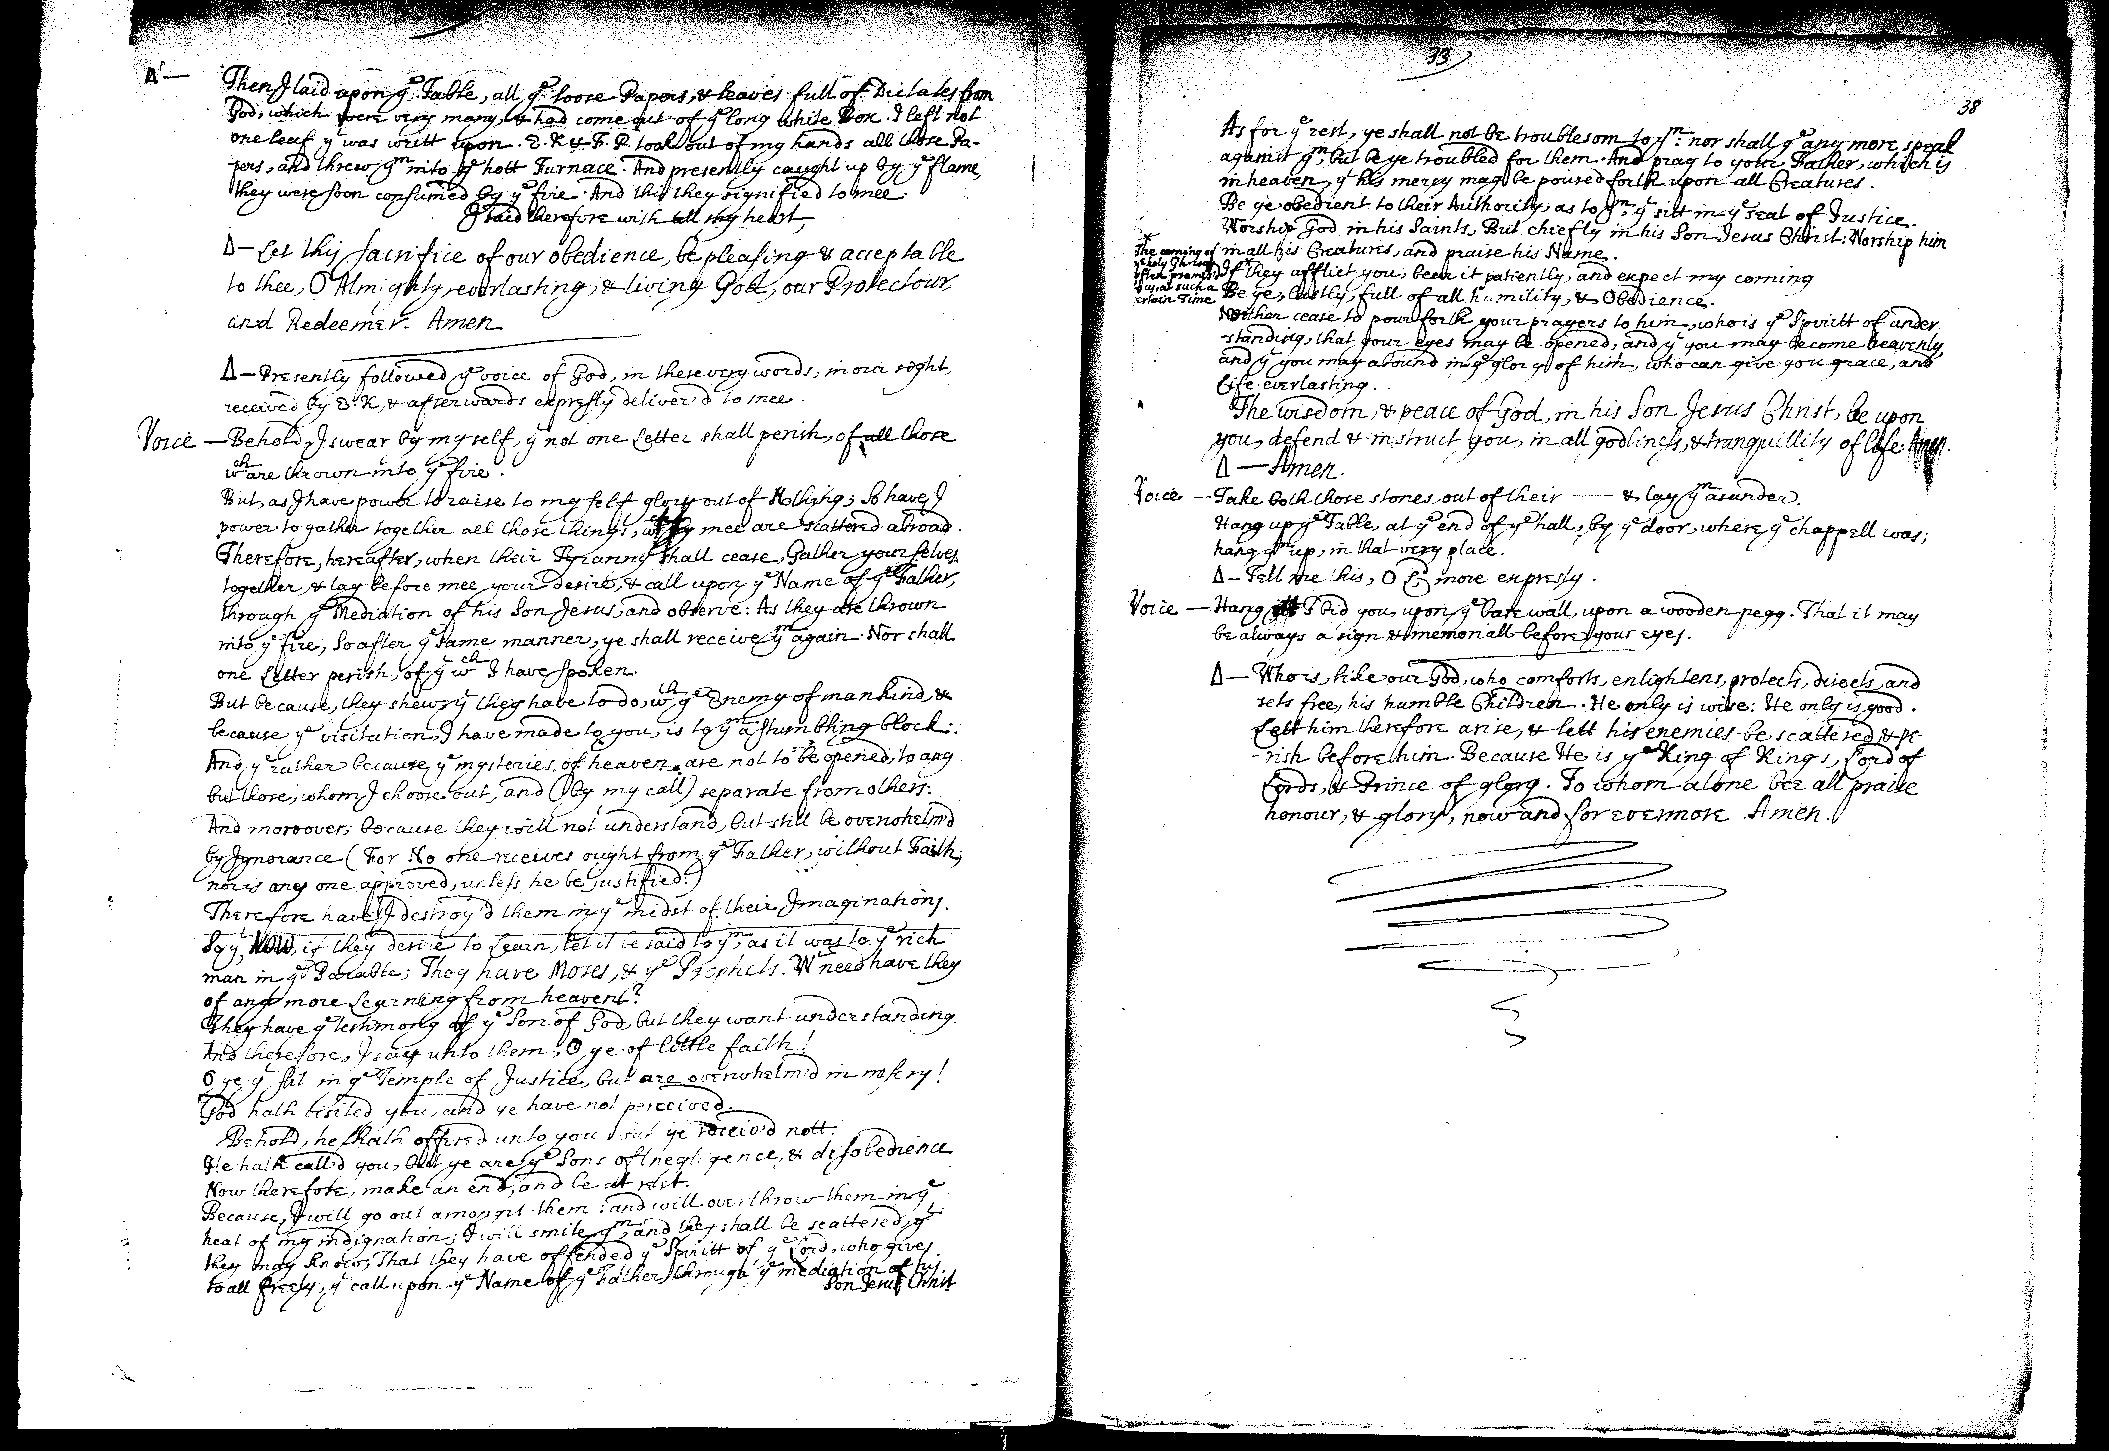 Δ — Then I laid upon yᵉ Table, all yᵉ loose Papers, & leaves full of Dictates from
God, which were very many, & had come out of yᵉ long white Box. I left not
one leaf yᵗ was writt upon. E.K & F.P. took out of my hands all those Pa-
pers, and threw yᵐ into yᵉ hott Furnace. And presently caught up by yᵉ flame
they were soon consumed by yᵉ fire. And this they signified to mee
I said therefore with all my heart,
Δ — Let this sacrifice of our obedience, be pleasing & acceptable
to thee, O Almighty, everlasting, & living God, our Protectour,
and Redeemer. Amen
Δ — Presently followed yᵉ voice of God, in these very words, in our sight,
received by E K, & afterwards expresly deliver'd to mee.
Voice — Behold, I swear by my self, yᵗ not one Letter shall perish, of all those
wᶜʰ are thrown into yᵉ fire.
But, as I have power to raise to my self glory out of Nothing; So have I
power to gather together all those things, by mee are scattered abroad.
Therefore, hereafter, when their Tyranny shall cease, Gather your selves
together, & lay before mee your desire, & call upon yᵉ Name of yᵉ Father,
through yᵉ Mediation of his Son Jesus, and observe: As they are thrown
into yᵉ fire, So after yᵉ same manner, ye shall receive yᵐ again. Nor shall
one Letter perish, of yᵗ wᶜʰ I have spoken.
But because, they shew yᵗ they have to do, wᵗʰ yᵉ Enemy of mankind, &
because yᵉ visitation, I have made to you, is to yᵐ a stumbling block:
And yᵉ rather because yᵉ mysteries of heaven are not to be opened, to any
but those, whom I choose out, and (by my call) separate from others.
And moreover, because they will not understand, but still be overwhelm'd
by Ignorance (For No one receives ought from yᵉ Father, without Faith;
nor is any one approved, unless he be justified.)
Therefore have I destroy'd them in yᵉ midst of their Imaginations.
So yᵗ, NOW, if they desire to Learn, let it be said to yᵐ, as it was to yᵉ rich
man in yᵉ Parable; They have Moses, & yᵉ Prophets. Wᵗ need have they
of any more Learning from heaven?
They have yᵉ testimony of yᵉ Son of God, but they want understanding.
And therefore, I say unto them, O ye of little faith!
O ye, yᵗ sit in yᵉ Temple of Justice, but are overwhelm'd in misery!
God hath visited you, and ye have not perceived.
Behold, he hath offered unto you, but ye receiv'd nott.
He hath call'd you, but ye are yᵉ Sons of negligence, & disobedience
Now therefore, make an end, and be at rest.
Because, I will go out amongst them: and will overthrow them in yᵉ
heat of my indignation; I will smite yᵐ, and they shall be scattered, yᵗ
they may know, That they have offended yᵉ Spiritt of yᵉ Lord, who gives
to all freely, yᵗ call upon yᵉ Name of yᵉ Father, through yᵉ mediation of his
Son Jesus Christ
33
38
As for yᵉ rest, ye shall not be troublesom to yᵐ: nor shall yᵉ any more speak
against yᵐ, but be ye troubled for them. And pray to your Father, which is
in heaven, yᵗ his mercy may be poured forth upon all Creatures.
Be ye obedient to their Authority, as to yᵐ, yᵗ sitt in yᵉ seat of Justice.
Worship God in his Saints, But chiefly in his Son Jesus Christ: Worship him
in all his Creatures, and praise his Name.
The coming of
yᵉ holy Ghost
often promis'd
to us at such a
certain Time
If they afflict you, bear it patiently, and expect my coming
Be ye, lastly, full of all humility, & Obedience.
Neither cease to pour forth your prayers to him, who is yᵉ Spiritt of under
-standing, that your eyes may be opened, and yᵗ you may become heavenly,
and yᵗ you may abound in yᵉ glory of him, who can give you grace, and
Life everlasting.
The wisdom, & peace of God, in his Son Jesus Christ, be upon
you, defend & instruct you, in all godliness, & tranquillity of life Amen.
Δ — Amen.
Voice — Take both those stones out of their —— & lay yᵐ asunder.
Hang up yᵉ Table, at yᵉ end of yᵉ hall, by yᵉ door, where yᵉ chappell was;
hang yᵐ up, in that very place.
Δ — Tell me this, O more expresly.
Voice — Hang I bid you, upon yᵉ bare wall, upon a wooden pegg. That it may
be always a sign & memoriall before your eyes.
Δ — Who is, like our God, who comforts, enlightens, protects, directs, and
sets free, his humble Children. He only is wise: He only is good.
Lett him therefore arise, & lett his enemies be scattered & pe-
-rish before him. Because He is yᵉ King of Kings, Lord of
Lords, & Prince of glory. To whom alone bee all praise
honour, & glory, now and for evermore Amen.